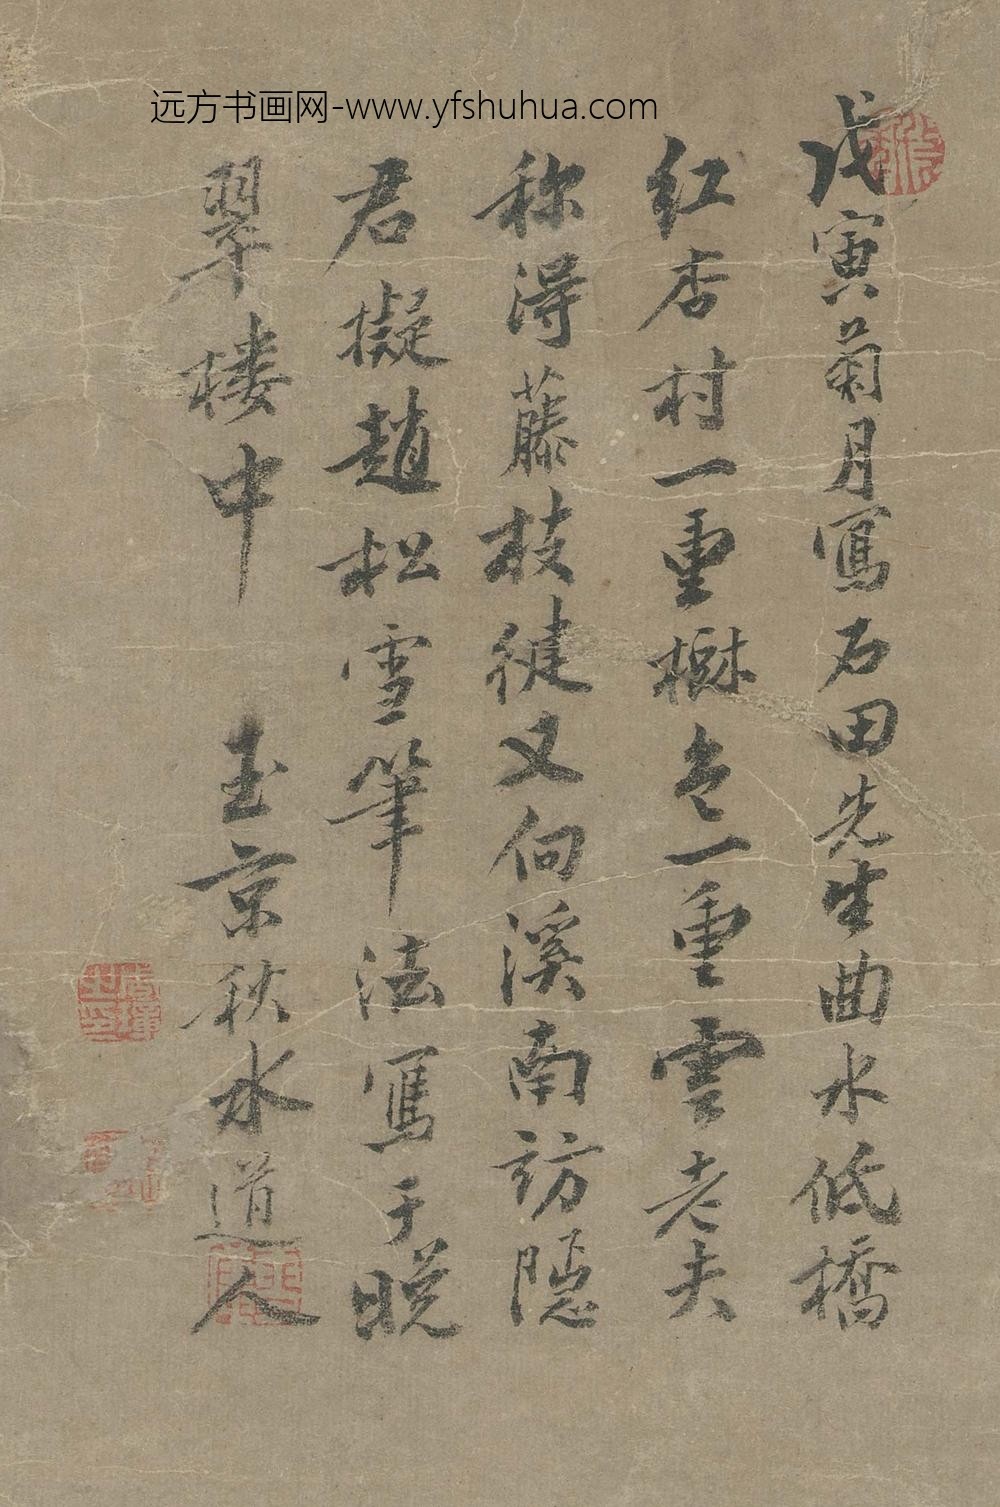 远方书画网-www.yfshuhua.com
戊寅菊月寫石田先生曲水低橋
紅杏村一重樹色一重雲老夫
称得藤枝健又向溪南訪隱
君擬趙松雪筆法寫于晚
翠楼中 玉京秋水道人